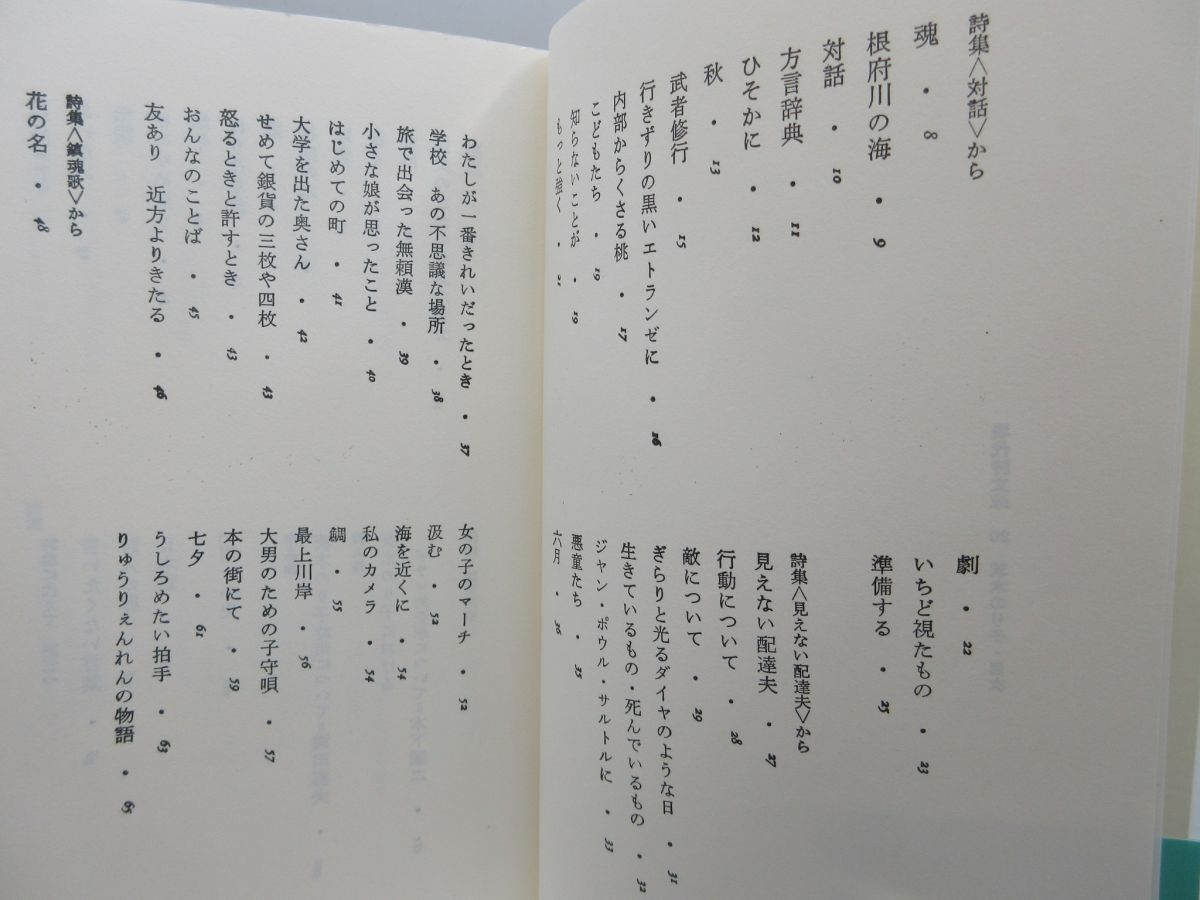 詩集〈対話〉から
魂・8
根府川の海・9
対話・10
方言辞典・11
ひそかに・12
秋・13
武者修行・15
行きずりの黒いエトランゼに・16
内部からくさる桃・17
こどもたち・19
知らないことが・19
もっと強く・21
劇・22
いちど視たもの・23
準備する・25
詩集〈見えない配達夫〉から
見えない配達夫・27
行動について・28
敵について・29
ぎらりと光るダイヤのような日・31
生きているもの・死んでいるもの・32
ジャン・ポウル・サルトルに・33
悪童たち・35
六月・36
わたしが一番きれいだったとき・37
学校 あの不思議な場所・38
旅で出会った無頼漢・39
小さな娘が思ったこと・40
はじめての町・41
大学を出た奥さん・42
せめて銀貨の三枚や四枚・43
怒るときと許すとき・43
おんなのことば・45
友あり 近方よりきたる・46
詩集〈鎮魂歌〉から
花の名・48
女の子のマーチ・52
汲む・52
海を近くに・54
私のカメラ・54
鯛・55
最上川岸・56
大男のための子守唄・57
本の街にて・59
七夕・61
うしろめたい拍手・63
りゅうりぇんれんの物語・65